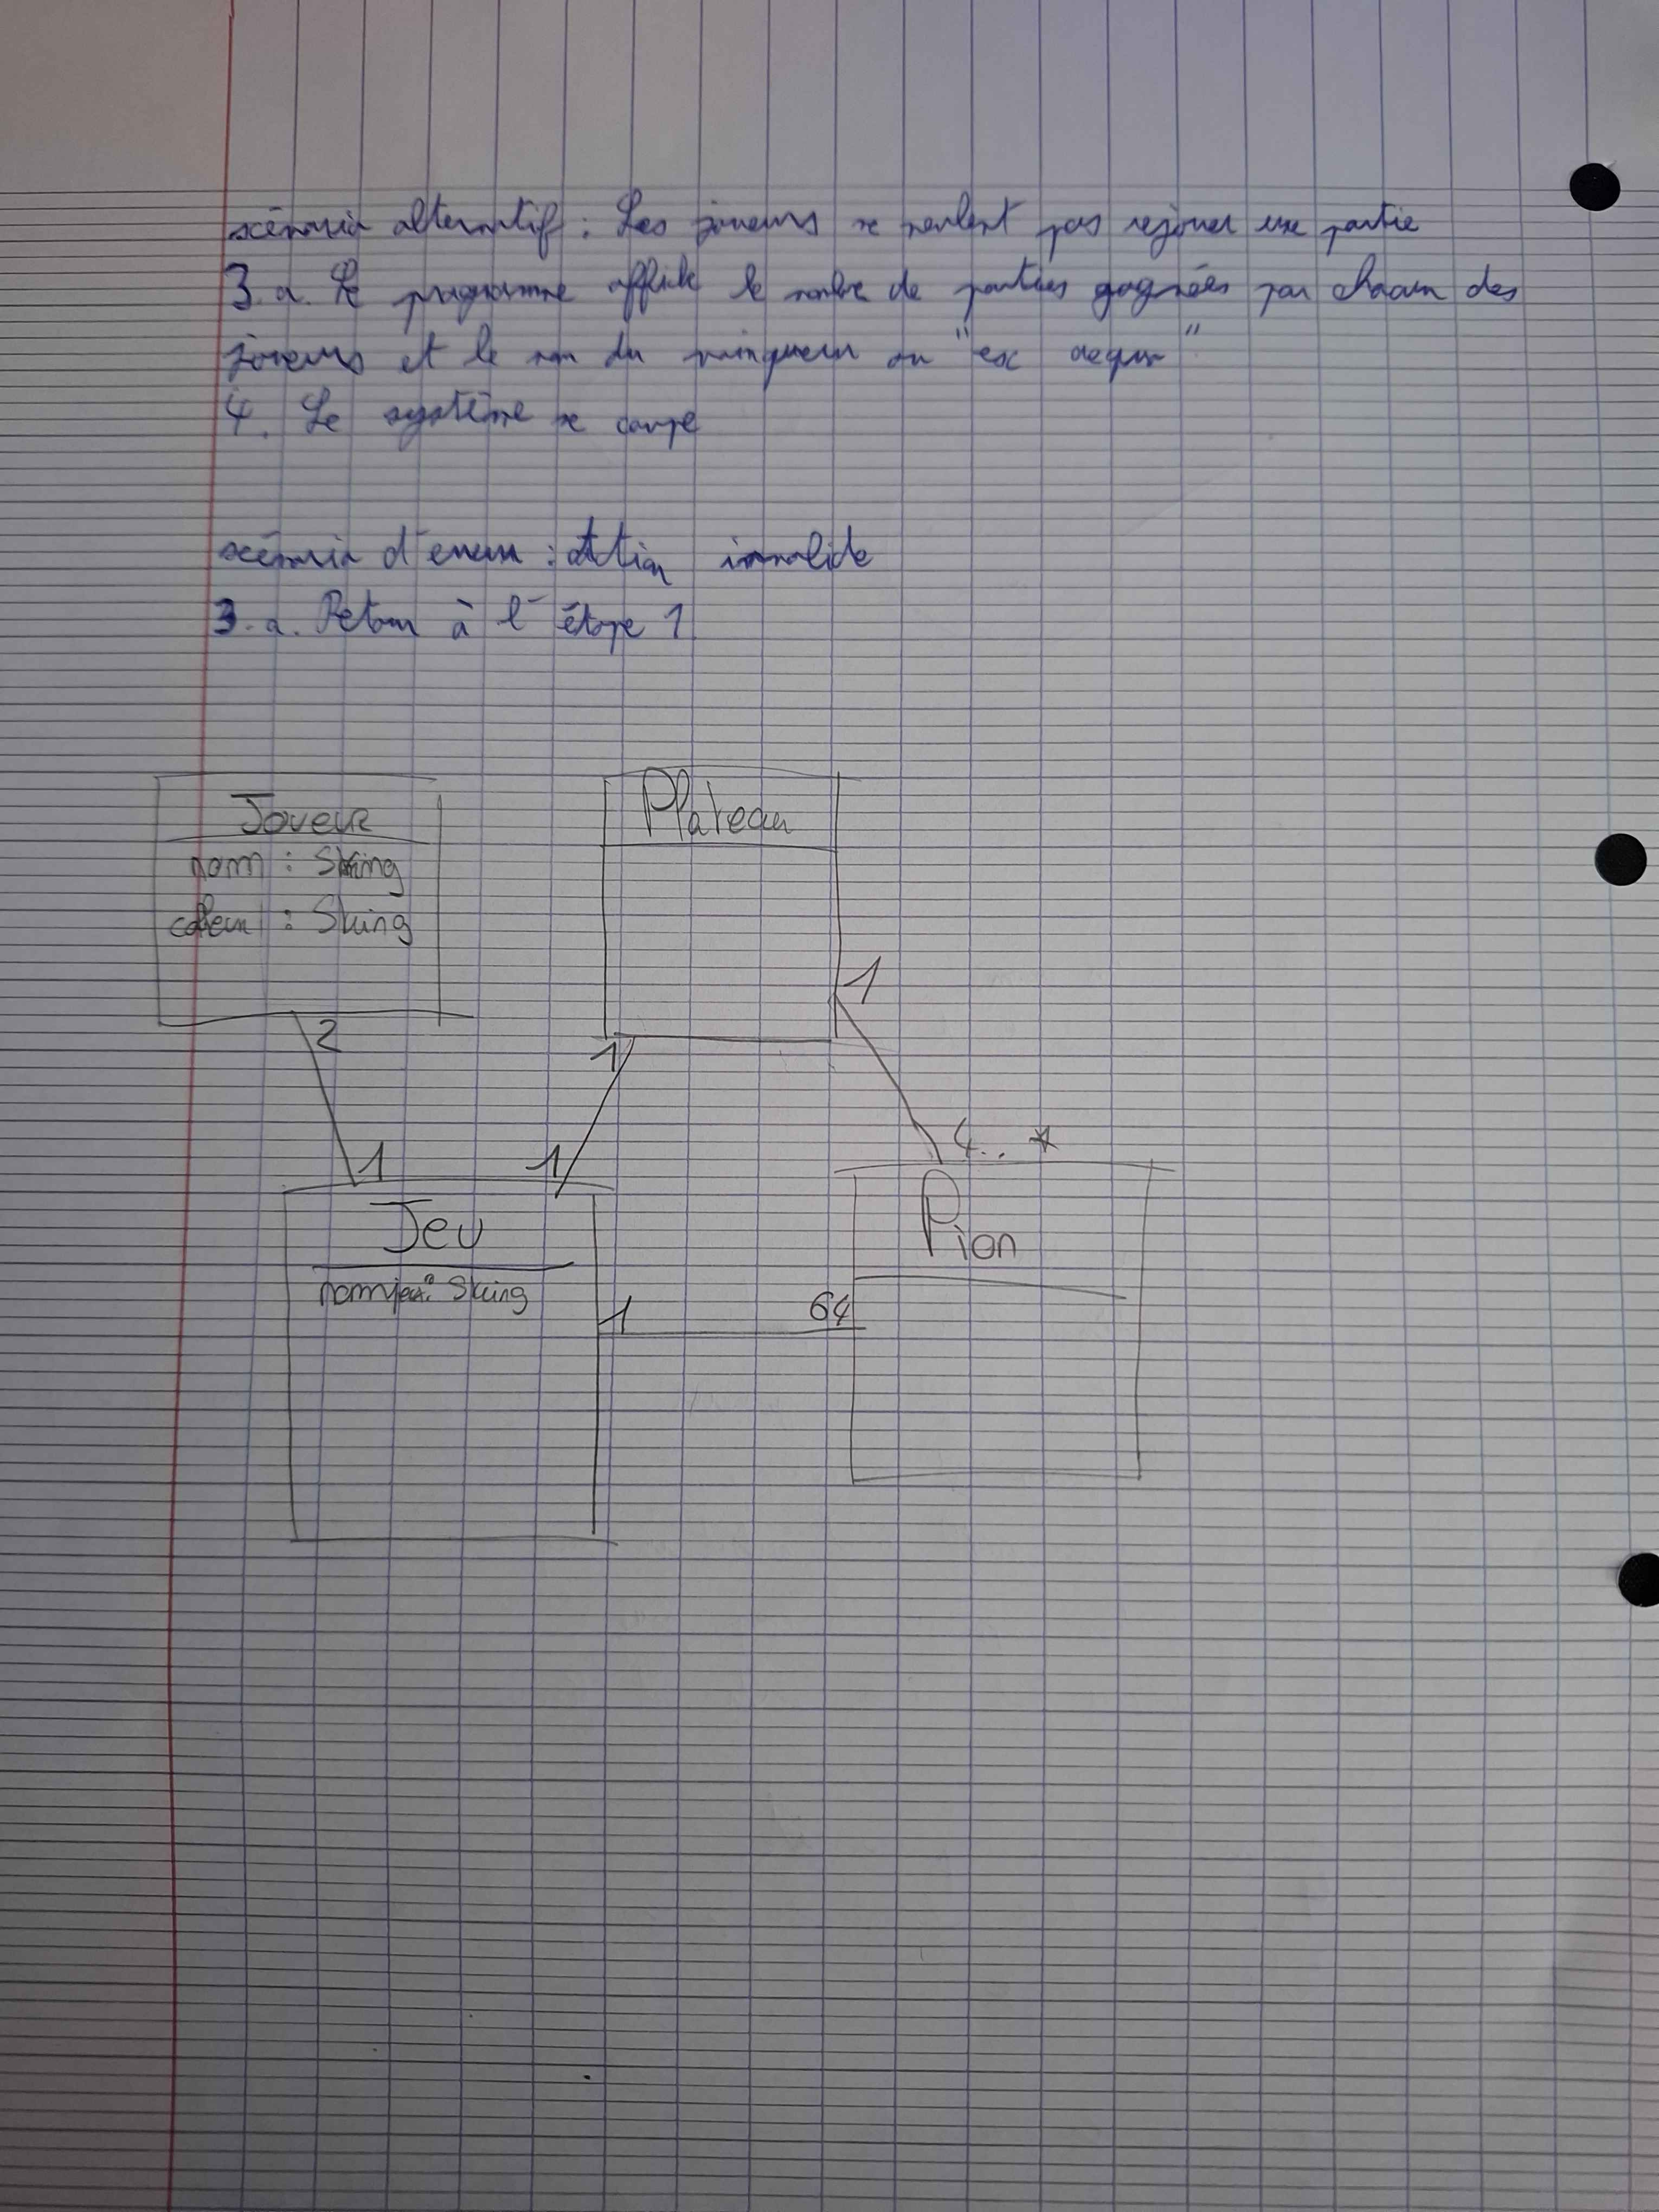 scénario alternatif : Les joueurs ne veulent pas rejouer une partie
3.a. Le programme affiche le nombre de parties gagnées par chacun des
joueurs et le nom du vainqueur ou "ex aequo"
4. Le système se coupe
scénario d'erreur : action invalide
3.a. Retour à l'étape 1
Joueur
nom : String
couleur : String
Plateau
1
2
1
4..*
1
1
Jeu
Pion
nomjeu : String
1
64